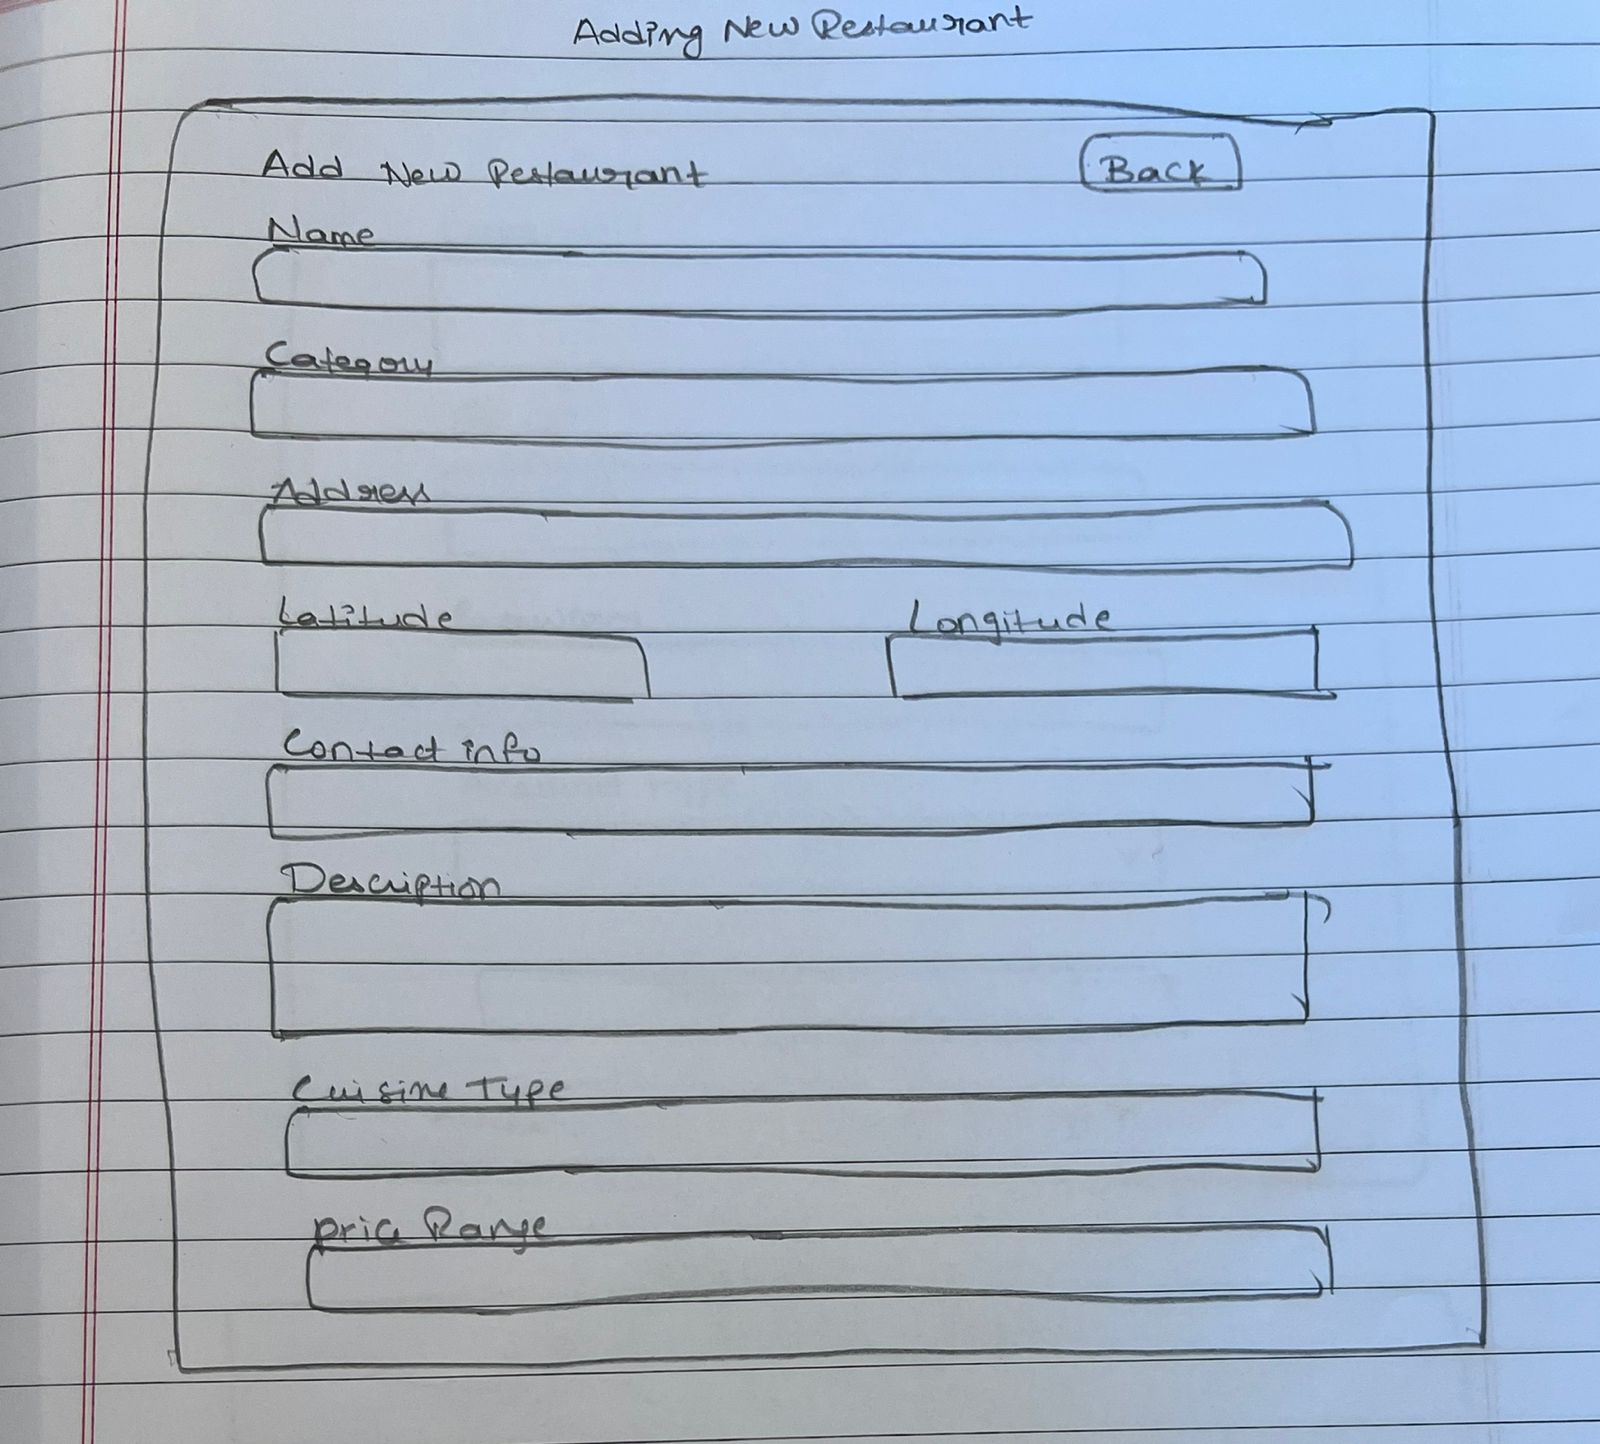 Adding New Restaurant
Add New Restaurant Back
Name
Category
Address
Latitude Longitude
Contact info
Description
Cuisine Type
price Range